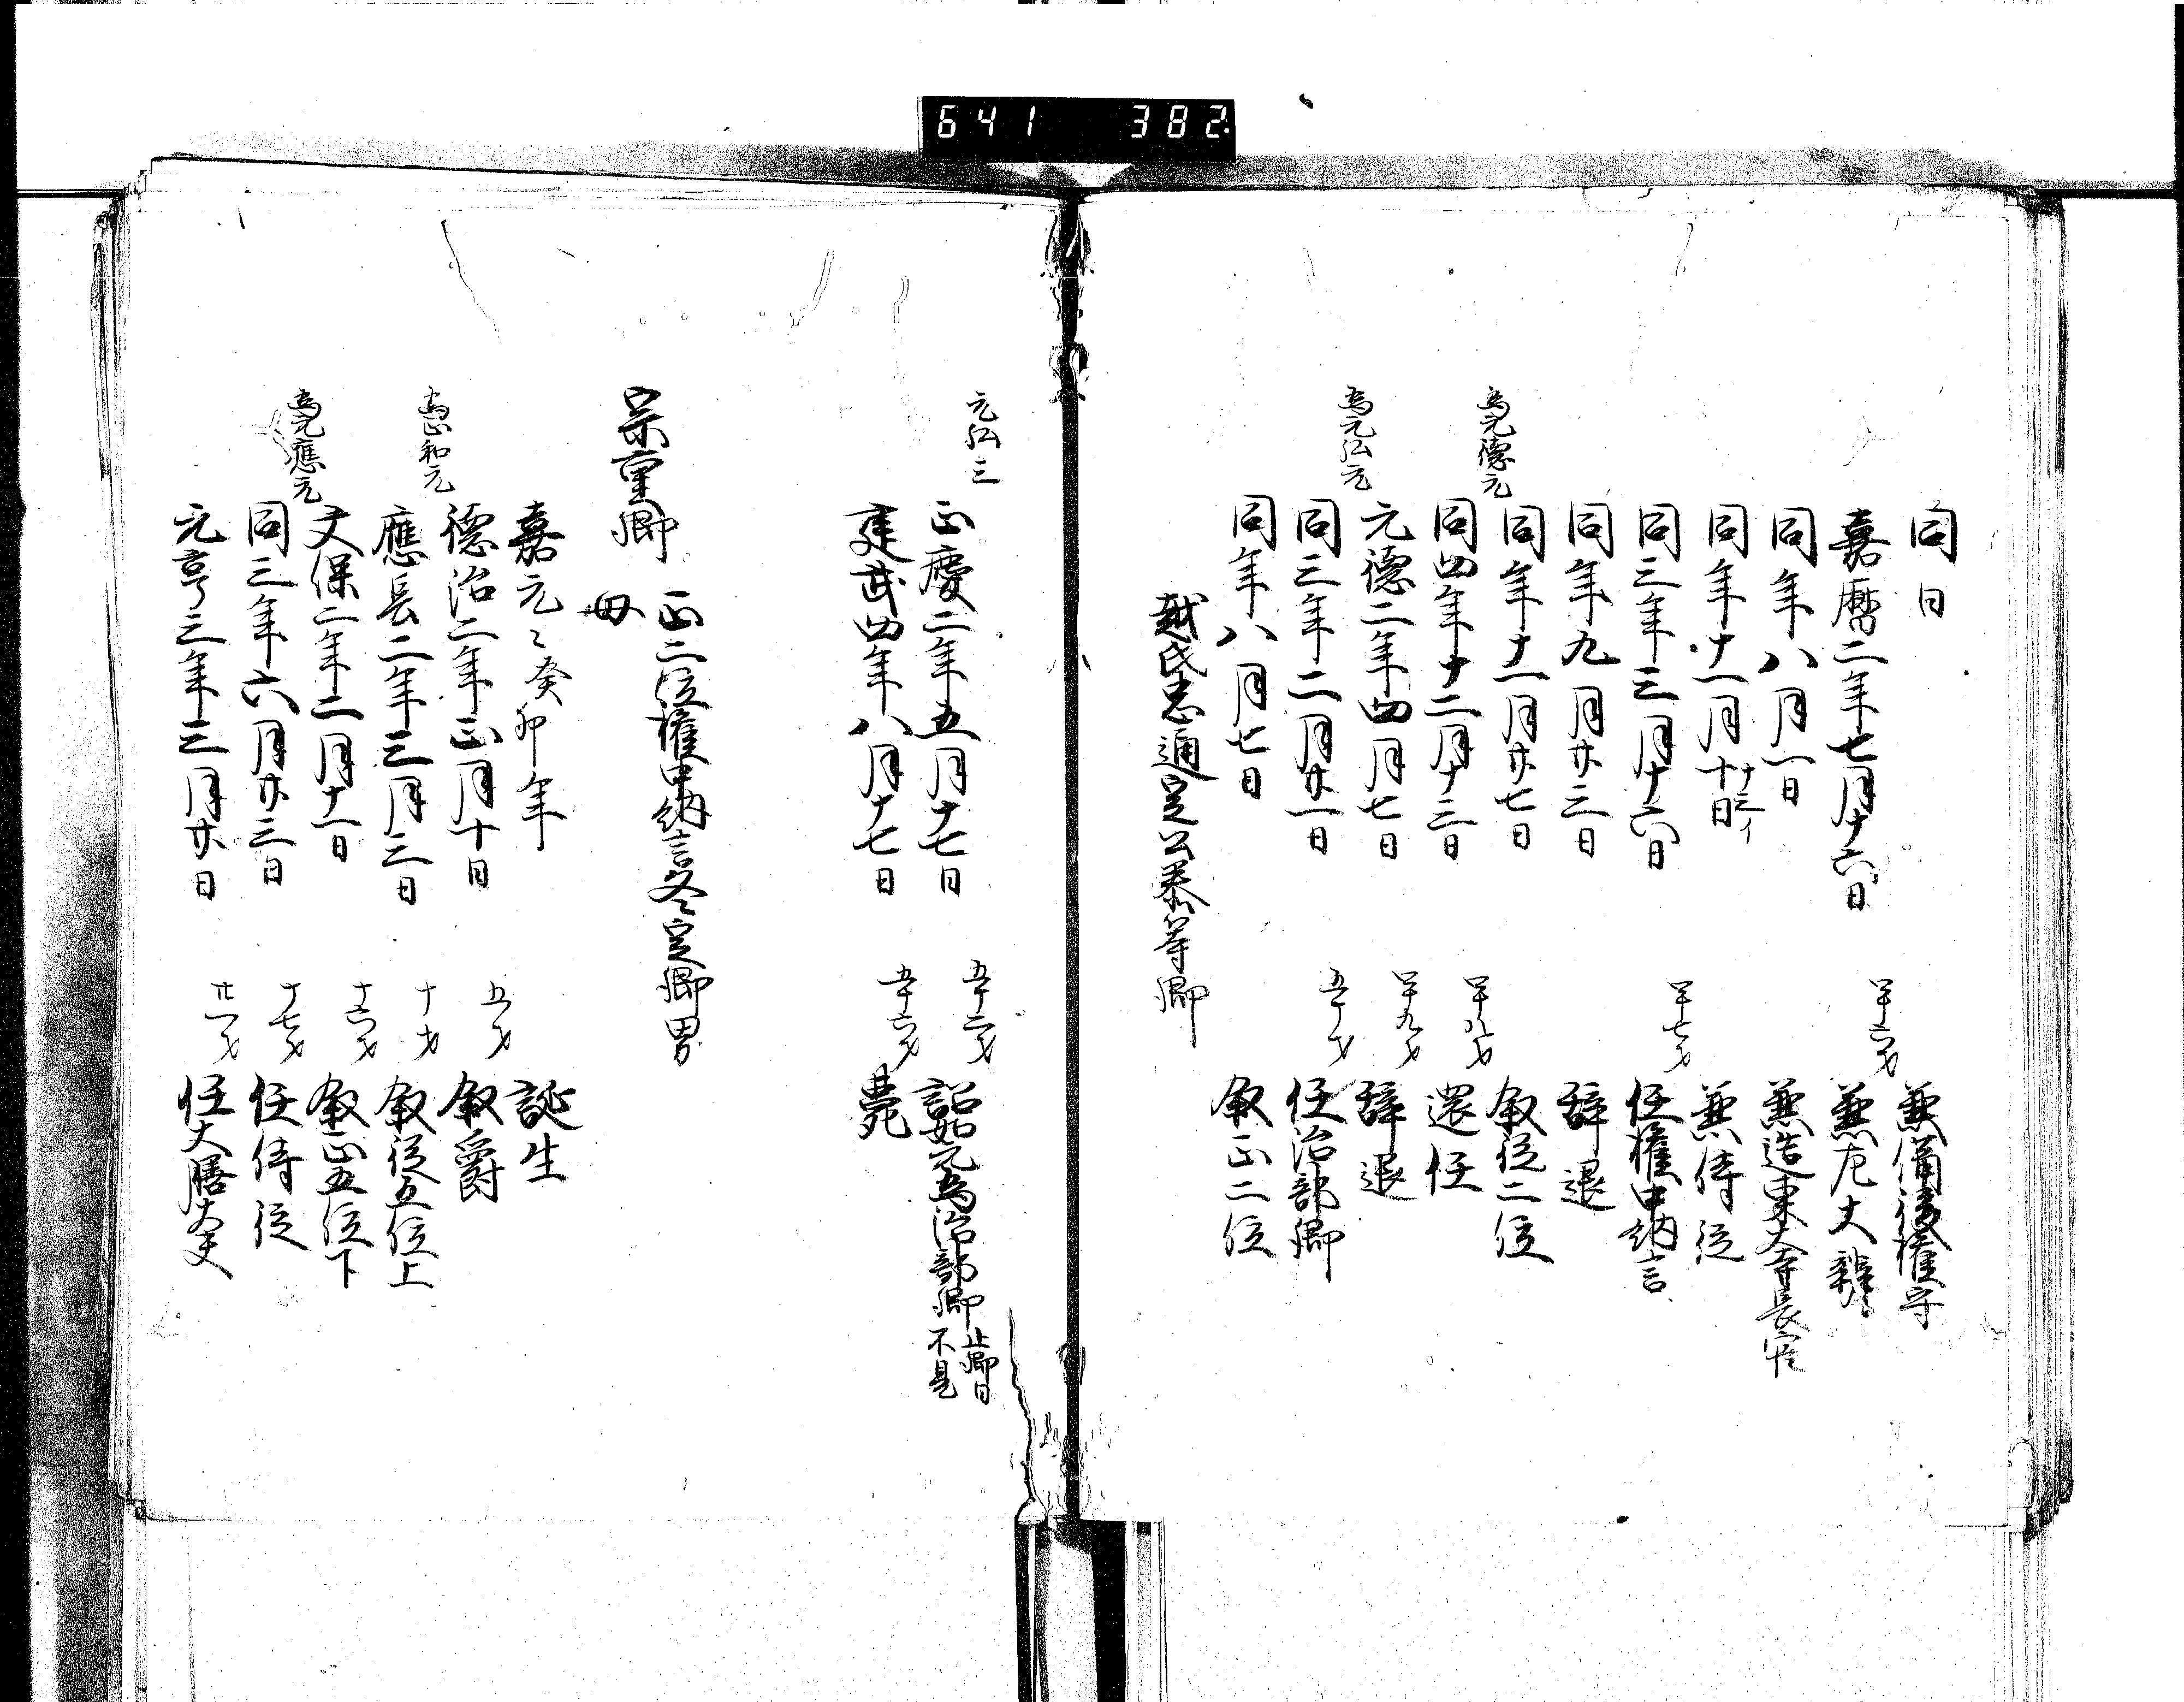 641 382
同日 兼備後權守
嘉曆二年七月十六日 四十六才 兼左大辨
同年八月一日 兼造東大寺長官
同年十一月十日 十三イ 兼侍從
同三年三月十六日 四十七才 任權中納言
同年九月廿三日 辞退
同年十一月廿七日 叙從二位
為元德元
同四年十二月十三日 四十八才 還任
元德二年四月七日 四十九才 辞退
為元弘元
同三年二月廿一日 五十才 任治部卿
同年八月七日 叙正二位
越氏忠通定公泰等卿
元弘三
正慶二年五月十七日 五十二才 詔如元為治部卿 止卿日不見
建武四年八月十七日 五十六才 薨
宗重卿 正二位權中納言冬定卿男
母
嘉元々癸卯年 誕生
德治二年正月十日 五才 叙爵
為正和元
應長二年三月三日 十才 叙從五位上
文保二年二月十一日 十六才 叙正五位下
為元應元
同三年六月廿三日 十七才 任侍從
元亨三年三月廿日 廿一才 任大膳大夫